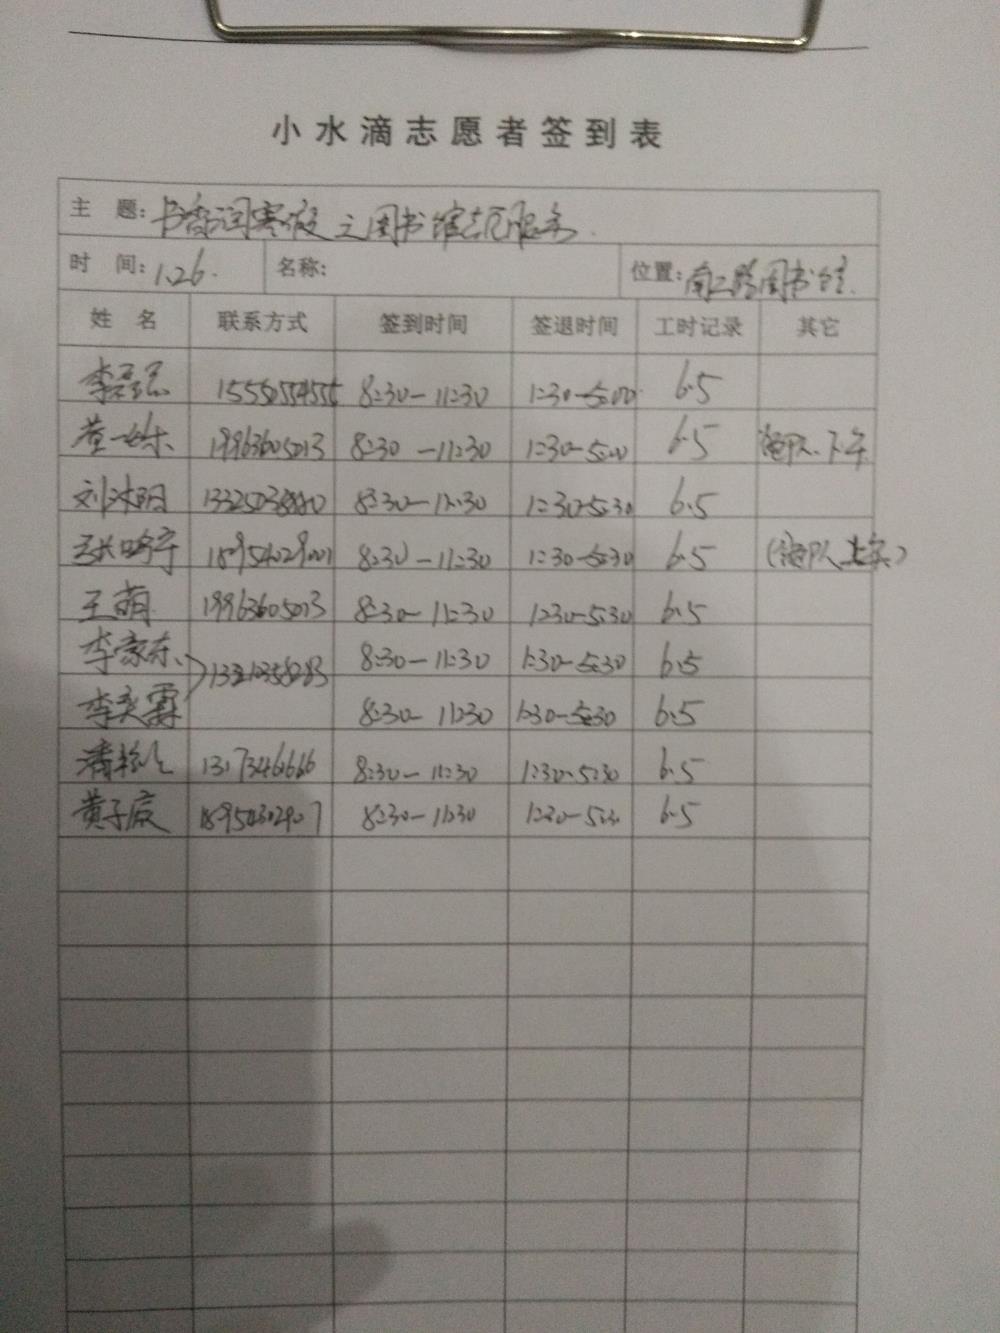 小水滴志愿者签到表
主 题: 书香润寒假之图书馆志愿服务.
时 间: 1.26. 名称: 位置: 南二路图书馆.
姓 名 联系方式 签到时间 签退时间 工时记录 其它
李 8:30-11:30 1:30-5:00 6.5
19963605013 8:30-11:30 1:30-5:00 6.5 下午
刘沐阳 8:30-11:30 1:30-5:30 6.5
18954029001 8:30-11:30 1:30-5:30 6.5
王萌 19963605013 8:30-11:30 1:30-5:30 6.5
李家东 8:30-11:30 1:30-5:30 6.5
李奕霖 8:30-11:30 1:30-5:30 6.5
潘 13173461666 8:30-11:30 1:30-5:30 6.5
黄子宸 18954302907 8:30-11:30 1:30-5:30 6.5